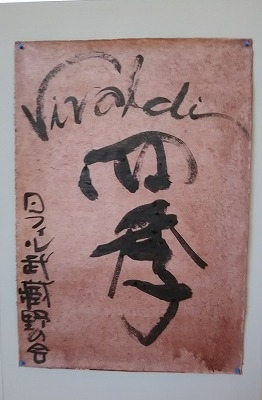 Vivaldi
四季
日フィル武蔵野の会